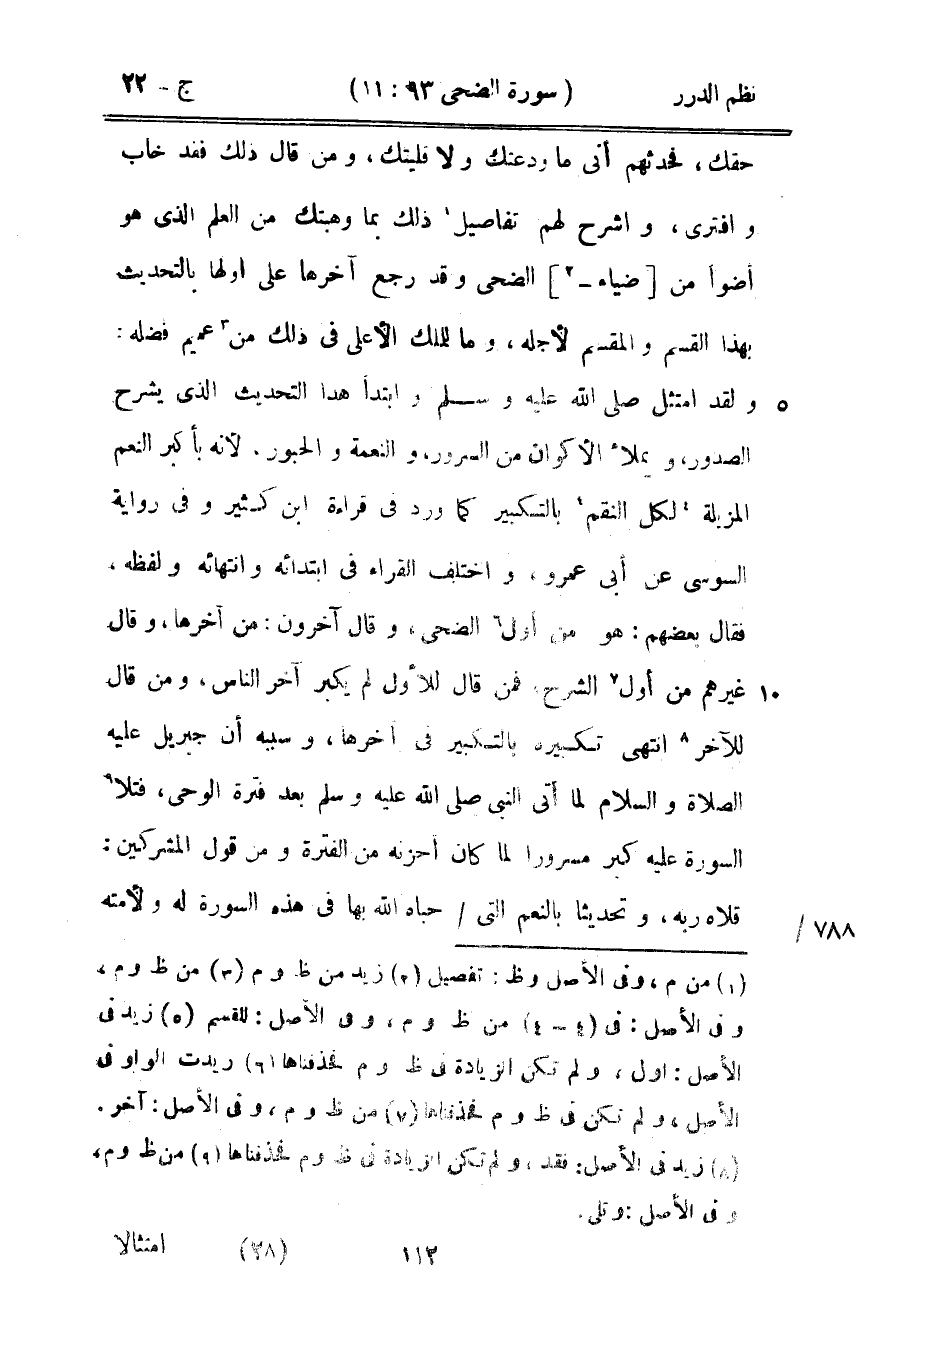 نظم الدرر ( سورة الضحى ٩٣ : ١١ ) ج - ٢٢
حقك ، فحدثهم أنى ما ودعتك و لا قليتك ، و من قال ذلك فقد خاب
و افترى ، و اشرح لهم تفاصيل١ ذلك بما وهبتك من العلم الذى هو
أضوأ من [ ضياء - ٢ ] الضحى و قد رجع آخرها على اولها بالتحديث
بهذا القسم و المقسم لأجله ، و ما للملك الأعلى فى ذلك من٣ عميم فضله :
٥ و لقد امتثل صلى الله عليه و سلم و ابتدأ هذا التحديث الذى يشرح
الصدور ، و يملأ الأكوان من السرور ، و النعمة و الحبور . لأنه بأكبر النعم
المزيلة ٤لكل النقم٤ بالتكبير كما ورد فى قراءة ابن كثير و فى رواية
السوسى عن أبى عمرو ، و اختلف القراء فى ابتدائه و انتهائه و لفظه ،
فقال بعضهم : هو من أول٦ الضحى ، و قال آخرون : من آخرها ، و قال
١٠ غيرهم من أول٧ الشرح ، فمن قال للأول لم يكبر آخر الناس ، و من قال
للآخر٨ انتهى تكبيره بالتكبير فى آخرها ، و سببه أن جبريل عليه
الصلاة و السلام لما أتى النبى صلى الله عليه و سلم بعد فترة الوحى ، فتلا٩
السورة عليه كبر مسرورا لما كان أحزنه من الفترة و من قول المشركين :
قلاه ربه ، و تحديثا بالنعم التى / حباه الله بها فى هذه السورة له و لأمته
٧٨٨ /
(١) من م ، وفى الأصل و ظ : تفصيل (٢) زيد من ظ و م (٣) من ظ و م ،
و فى الأصل : فى (٤ - ٤) من ظ و م ، و فى الأصل : للقسم (٥) زيد فى
الأصل : اول ، و لم تكن الزيادة فى ظ و م فحذفناها (٦) زيدت الواو فى
الأصل ، و لم تكن فى ظ و م فحذفناها (٧) من ظ و م ، و فى الأصل : آخر .
(٨) زيد فى الأصل : فقد ، و لم تكن الزيادة فى ظ و م فحذفناها (٩) من ظ و م ،
و فى الأصل : و تلى .
١١٢ (٢٨) امتثالا